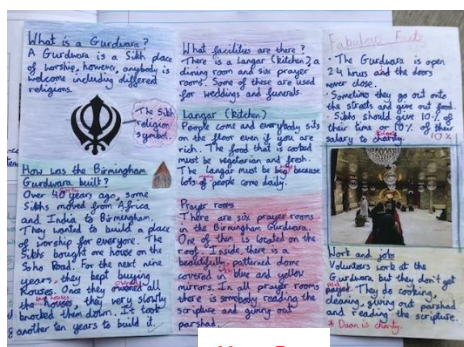 What is a Gurdwara?
A Gurdwara is a Sikh place
of worship, however, anybody is
welcome including different
religions.
The Sikh
religion
symbol.
How was the Birmingham
Gurdwara built?
Over 40 years ago, some
Sikhs moved from Africa
and India to Birmingham.
They wanted to build a place
of worship for everyone. The
Sikhs bought one house on the
Soho Road. For the next nine
years, they kept buying
houses. Once they owned all
the houses, they very slowly
knocked them down. It took
another ten years to build it.
What facilities are there?
There is a langar (kitchen) a
dining room and six prayer
rooms. Some of these are used
for weddings and funerals.
Langar (kitchen)
People come and everybody sits
on the floor even if you are
rich. The food that is
must be vegetarian and fresh.
The langar must be big because
lots of people come daily.
Prayer rooms
There are six prayer rooms
in the Birmingham Gurdwara.
One of them is located on the
roof. Inside there is a
beautifully patterned dome
covered in blue and yellow
mirrors. In all prayer rooms
there is somebody reading the
scripture and giving out
parshad.
Fabulous Facts
The Gurdwara is open
24 hours and the doors
never close.
Sometimes they go out onto
the streets and give out food.
Sikhs should give 10% of
their time or 10% of their
salary to charity.
10%
Work and jobs
Volunteers work at the
Gurdwara but they don't get
They do cooking,
cleaning, giving out parshad
and reading the scripture.
* Daan is charity.